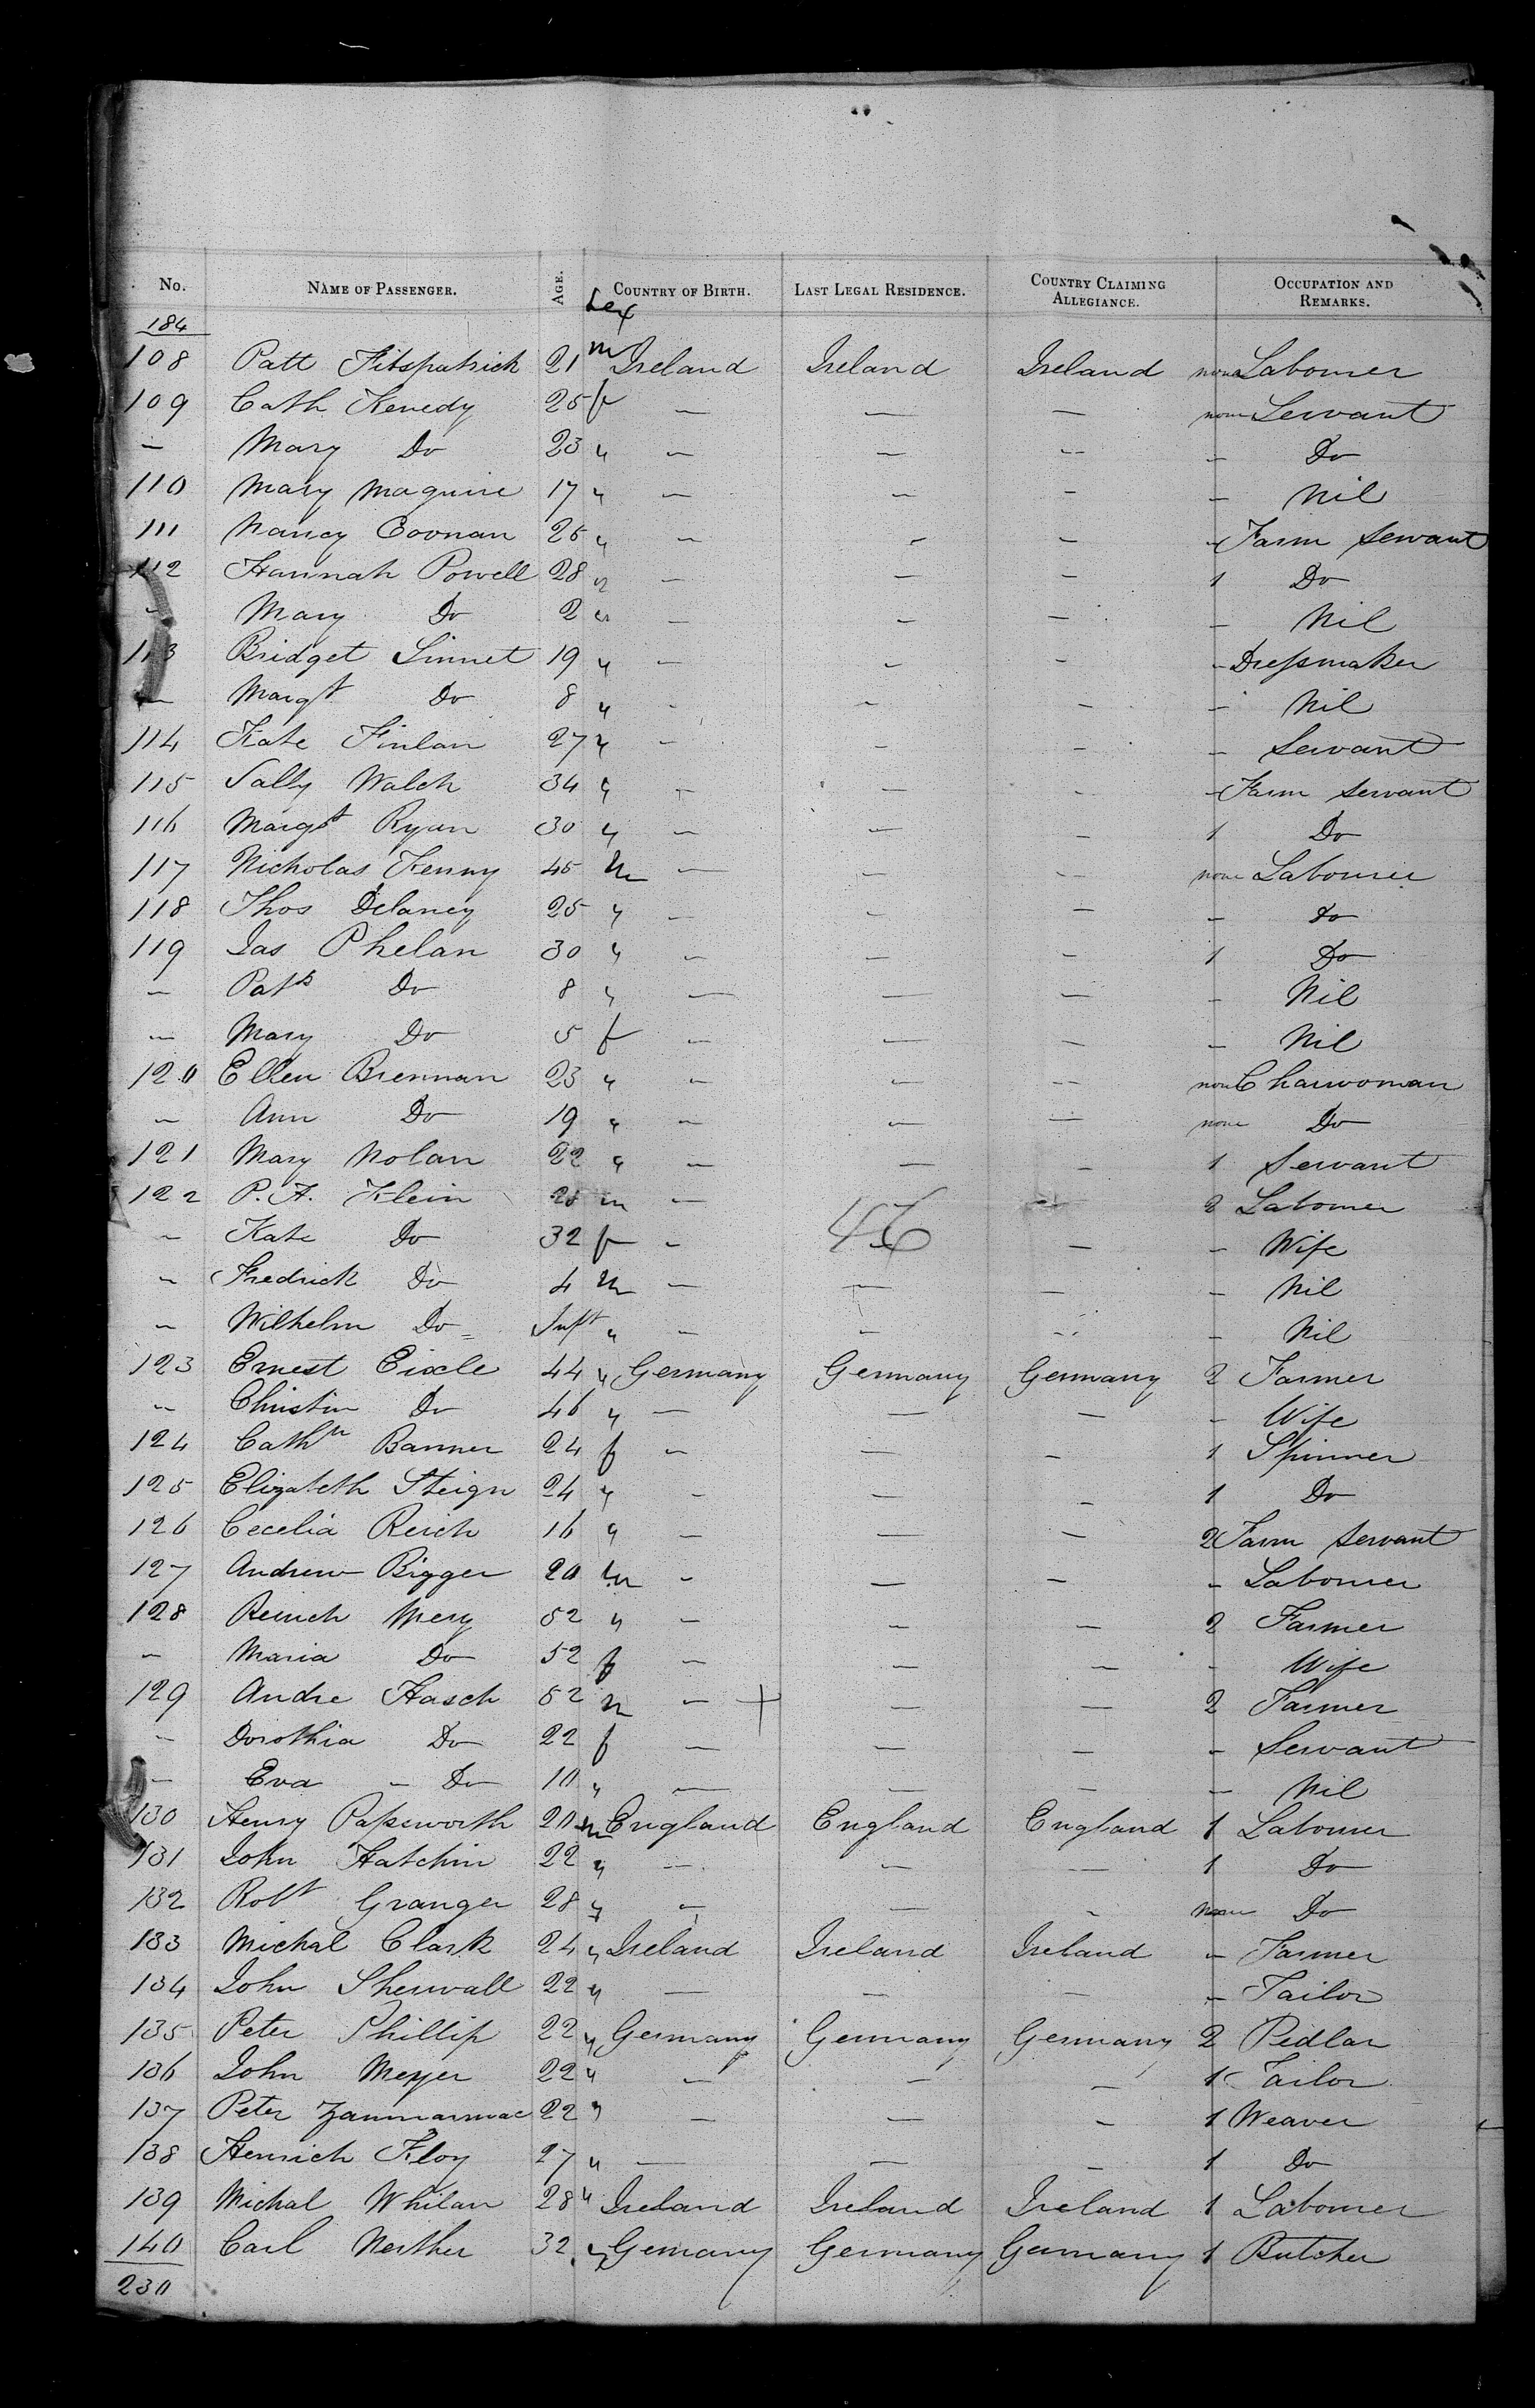 No. NAME OF PASSENGER. AGE. Sex COUNTRY OF BIRTH. LAST LEGAL RESIDENCE. COUNTRY CLAIMING ALLEGIANCE. OCCUPATION AND REMARKS.
184
108 Patt Fitspatrick 21 m Ireland Ireland Ireland none Labourer
109 Cath Kenedy 25 f — — — none Servant
— Mary Do 23 " — — — — Do
110 Mary Maguire 17 " — — — — Nil
111 Nancy Coonan 25 " — — — — Farm Servant
112 Hannah Powell 28 " — — — 1 Do
— Mary Do 2 " — — — — Nil
113 Bridget Sinnet 19 " — — — — Dressmaker
— Margt Do 8 " — — — — Nil
114 Kate Finlan 27 " — — — — Servant
115 Sally Walch 34 " — — — — Farm Servant
116 Margt Ryan 30 " — — — 1 Do
117 Nicholas Kenny 45 m — — — none Labourer
118 Thos Delaney 25 " — — — — do
119 Jas Phelan 30 " — — — 1 Do
— Patk Do 8 " — — — — Nil
— Mary Do 5 f — — — — Nil
120 Ellen Brennan 23 " — — — none Charwoman
— Ann Do 19 " — — — none Do
121 Mary Nolan 22 " — — — 1 Servant
122 P. A. Klein m — 46 — 2 Labourer
— Kate Do 32 f — — — Wife
— Fredrick Do 4 m — — — — Nil
— Wilhelm Do Inft " — — — — Nil
123 Ernest Eixle 44 " Germany Germany Germany 2 Farmer
— Christin Do 46 " — — — — Wife
124 Cathn Banner 24 f — — — 1 Spinner
125 Elizabeth Steign 24 " — — — 1 Do
126 Cecelia Reich 16 " — — — 2 Farm Servant
127 Andrew Bigger 20 m — — — — Labourer
128 Reinch Mery 52 " — — — 2 Farmer
— Maria Do 52 f — — — — Wife
129 Andre Hasch 52 m — + — — 2 Farmer
— Dorothia Do 22 f — — — — Servant
— Eva — Do 10 " — — — — Nil
130 Henry Papsworth 20 m England England England 1 Labourer
131 John Hatchin 22 " — — — 1 Do
132 Robt Granger 28 " — — — none Do
133 Michal Clark 24 " Ireland Ireland Ireland — Farmer
134 John Sherwall 22 " — — — — Tailor
135 Peter Phillip 22 " Germany Germany Germany 2 Pedlar
136 John Meyer 22 " — — — 1 Tailor
137 Peter Zammarmac 22 " — — — 1 Weaver
138 Henrich Kloy 27 " — — — 1 Do
139 Michal Whilan 28 " Ireland Ireland Ireland 1 Labourer
140 Carl Nerther 32 " Gemany Germany Germany 1 Butcher
230